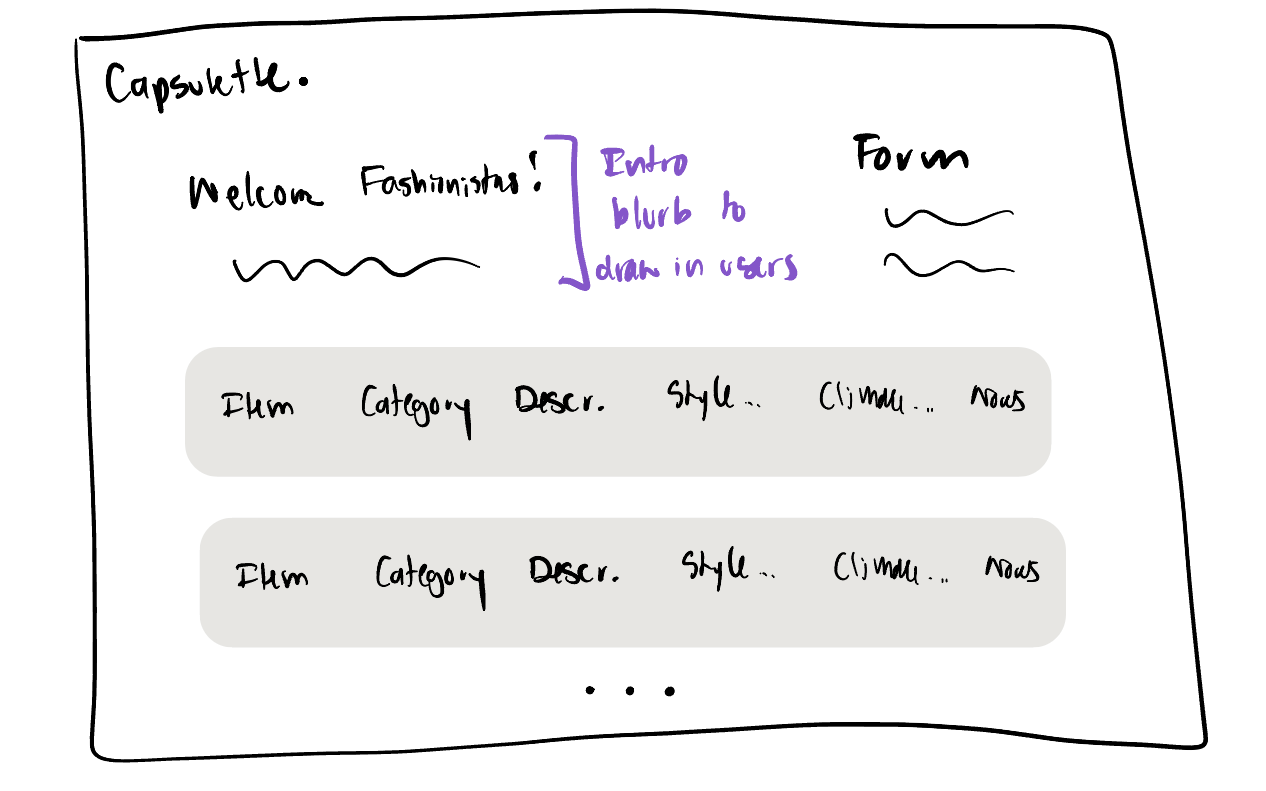 Capsulette.
Welcom Fashionistas!
Intro
blurb to
draw in users
Form
Item Category Descr. Style... Climate... Notes
Item Category Descr. Style... Climate... Notes
...